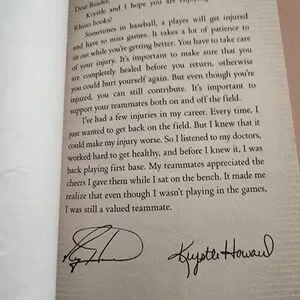 Dear Reader,
Krystle and I hope you are enjoying
Rhino books!
Sometimes in baseball, a player will get injured
and have to miss games. It takes a lot of patience to
sit out while you're getting better. You have to take care
of your injury. It's important to make sure that you
are completely healed before you return, otherwise
you could hurt yourself again. But even though you're
injured, you can still contribute. It's important to
support your teammates both on and off the field.
I've had a few injuries in my career. Every time, I
just wanted to get back on the field. But I knew that it
could make my injury worse. So I listened to my doctors,
worked hard to get healthy, and before I knew it, I was
back playing first base. My teammates appreciated the
cheers I gave them while I sat on the bench. It made me
realize that even though I wasn't playing in the games,
I was still a valued teammate.
Krystle Howard